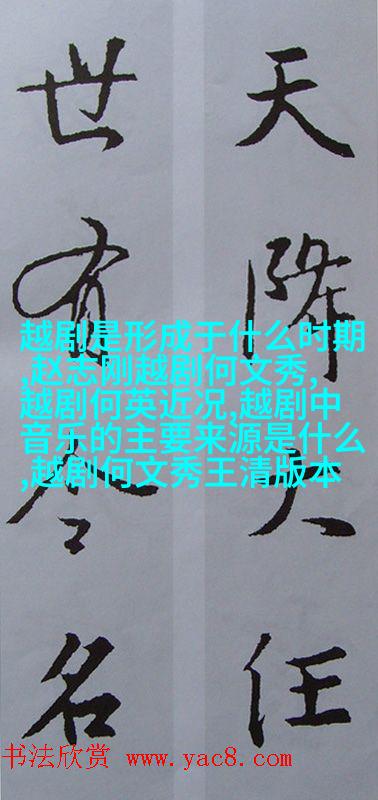 天降大任
世有令名
越剧是形成于什么时期
,赵志刚越剧何文秀,
越剧何英近况,越剧中
音乐的主要来源是什么
,越剧何文秀王清版本
书法欣赏 www.yac8.com